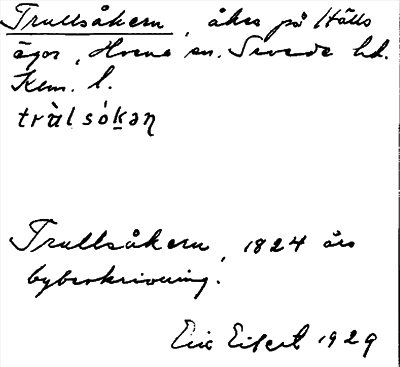 Trullsåkern, åker på Hälls
ägor, Hvena sn. Sevede hd.
Kem. l.
tràlsókan
Trullsåkern, 1824 års
bybeskrivning.
Eric Eifert 1929